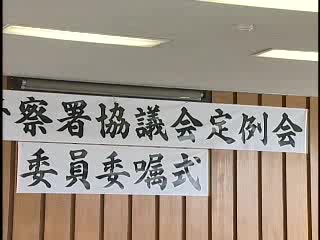 察署協議会定例会
委員委嘱式